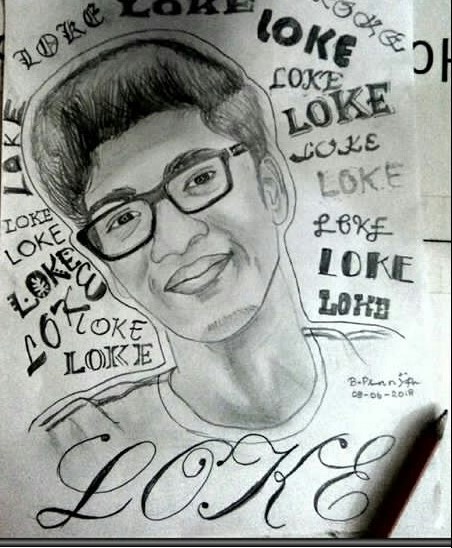 LOKE
LOKE
LOKE
LOKE
LOKE
LOKE
LOKE
LOKE
LOKE
LOKE
LOKE
LOKE
LOKE
LOKE
LOKE
LOKE
LOKE
LOKE
08-06-2018
LOKE